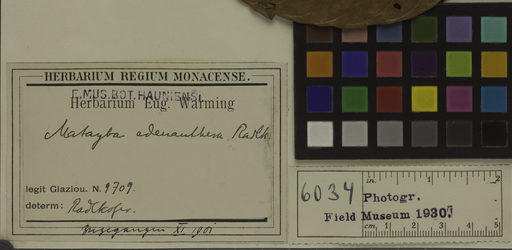 HERBARIUM REGIUM MONACENSE.
E MUS. BOT. HAUNIENSI.
Herbarium Eug. Warming
Matayba adenanthera Radlk
legit Glaziou. N. 9709.
determ: Radlkofer.
XI. 1901
6034
Photogr.
Field Museum 1930.
in. 1 2
cm. 1 2 3 4 5